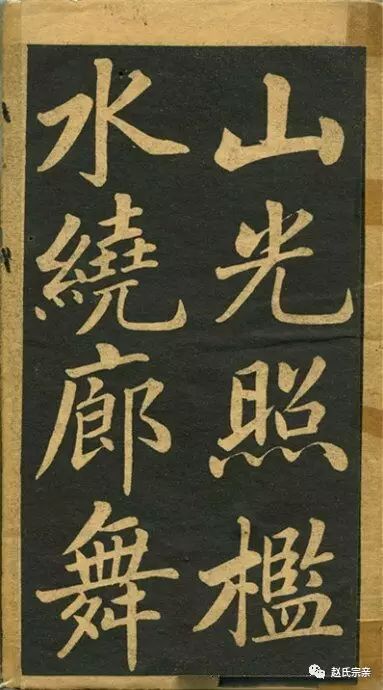 山光照檻
水繞廊舞
赵氏宗亲